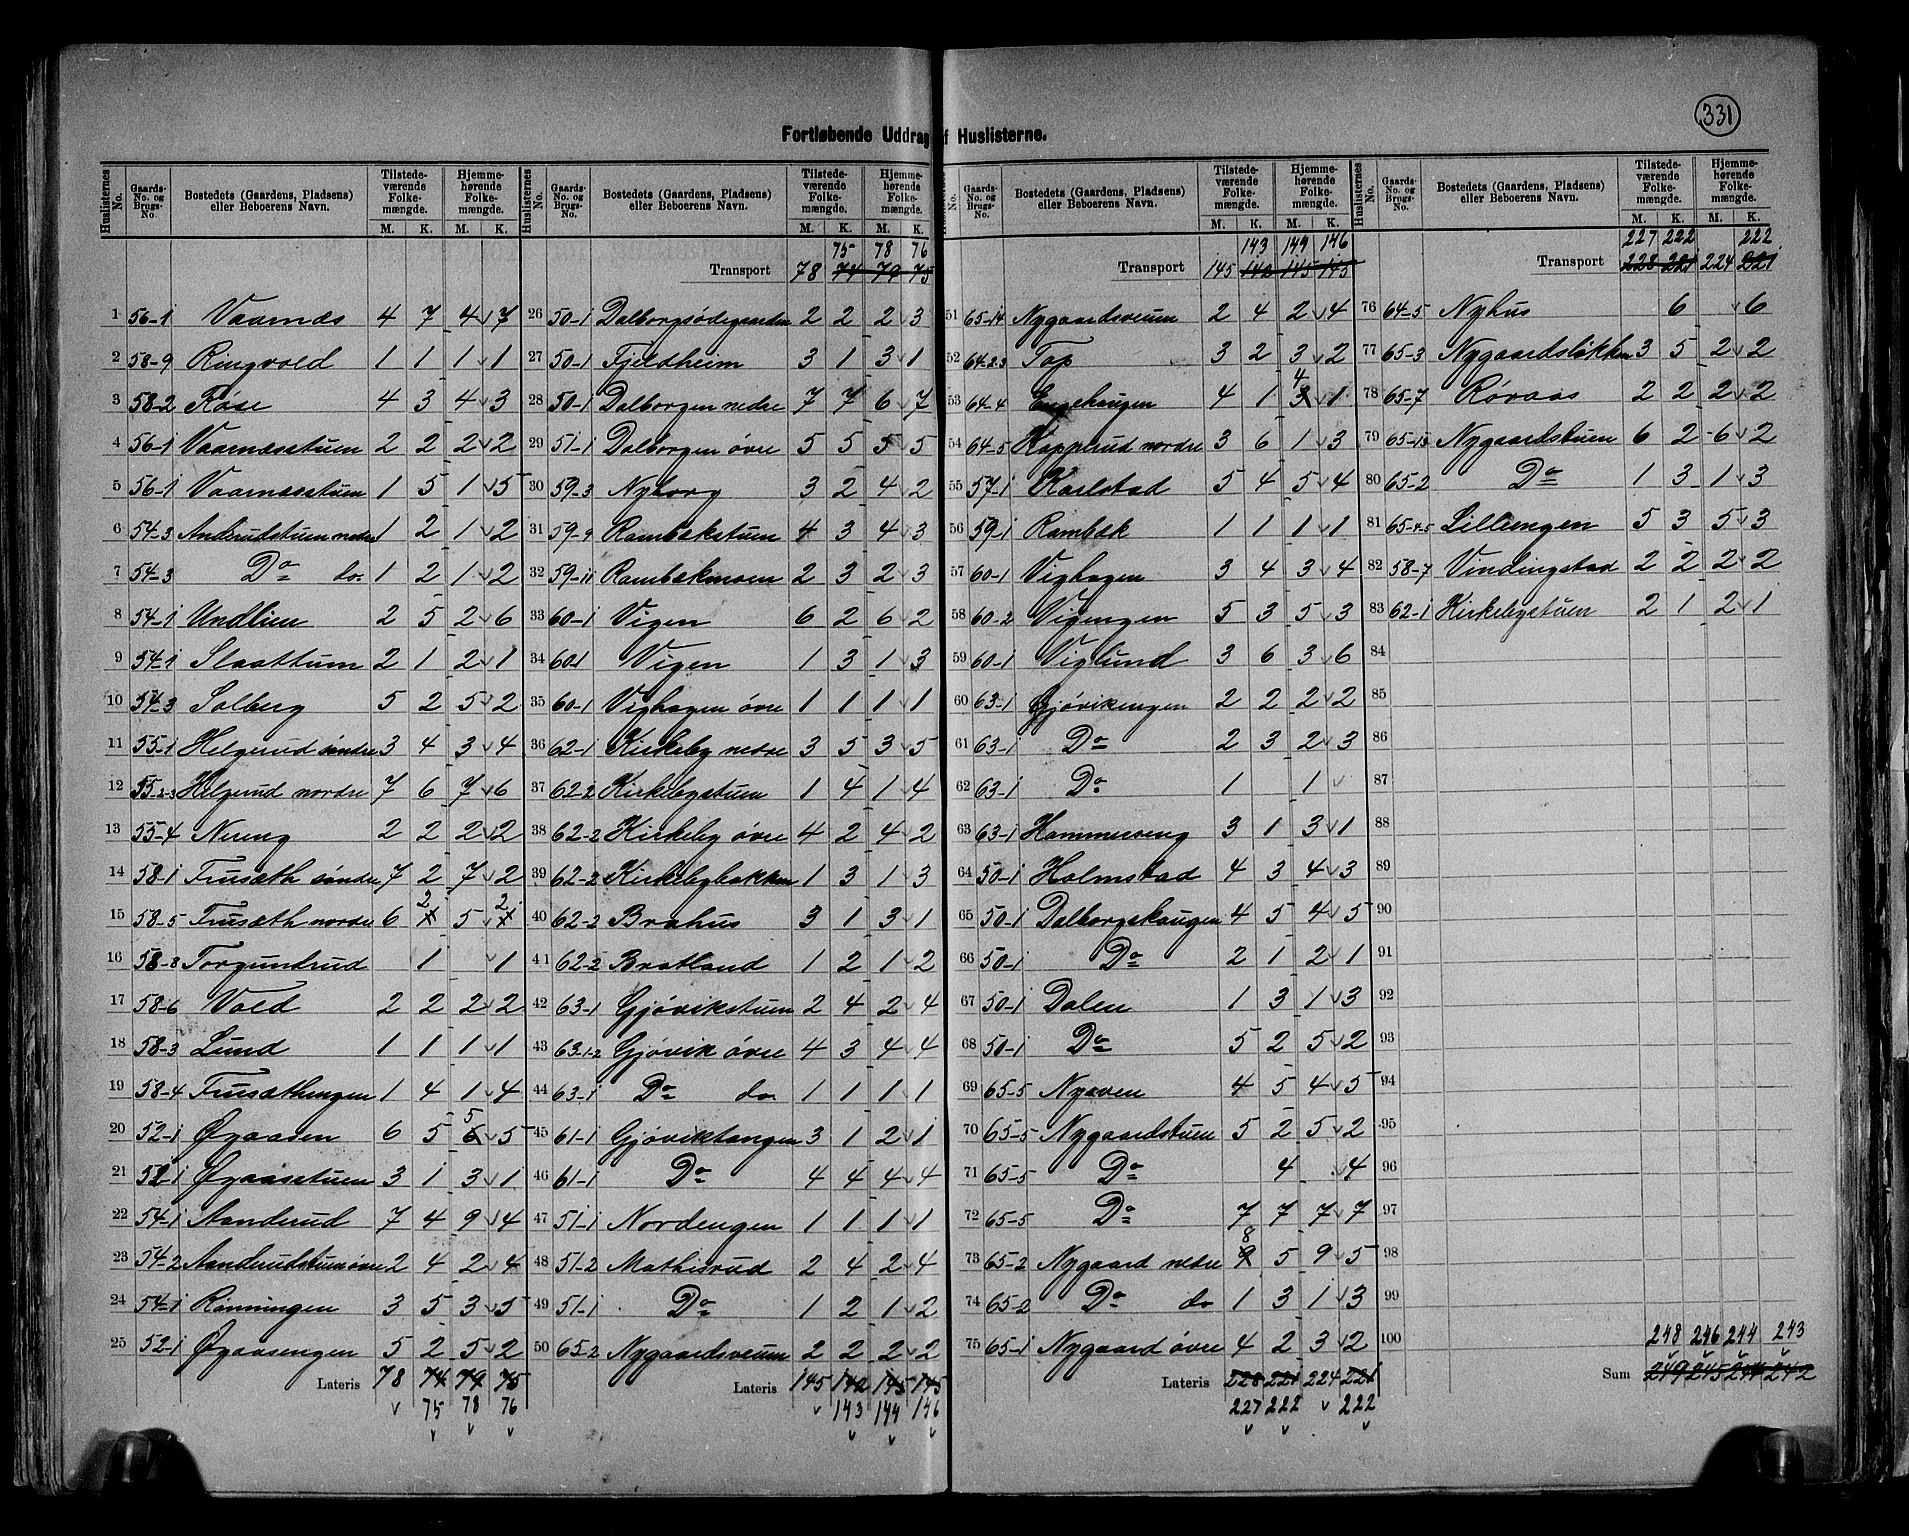 331
Fortløbende Uddrag af Huslisterne.
Huslisternes No. Gaards-No. og Brugs-No. Bostedets (Gaardens, Pladsens) eller Beboerens Navn. Tilstedeværende Folkemængde. M. K. Hjemmehørende Folkemængde. M. K.
1 56-1 Vaarnæs 4 7 4 7
2 58-9 Ringvold 1 1 1 1
3 58-2 Røise 4 3 4 3
4 56-1 Vaarnæsstuen 2 2 2 2
5 56-1 Vaarnæsstuen 1 5 1 5
6 54-3 Anderudstuen nedre 1 2 1 2
7 54-3 Do do. 1 2 1 2
8 54-1 Undlien 2 5 2 6
9 54-1 Slaattum 2 1 2 1
10 54-3 Solberg 5 2 5 2
11 55-1 Helgerud søndre 3 4 3 4
12 55-2-3 Helgerud nordre 7 6 7 6
13 55-4 Nereng 2 2 2 2
14 58-1 Trusæth søndre 7 2 7 2
15 58-5 Trusæth nordre 6 2 5 2
16 58-8 Torgundrud 1 1
17 58-6 Vold 2 2 2 2
18 58-3 Lund 1 1 1 1
19 58-4 Trusæthengen 1 4 1 4
20 52-1 Øgaasen 6 5 6 5 5
21 52-1 Øgaasstuen 3 1 3 1
22 54-1 Aanderud 7 4 9 4
23 54-2 Aanderudstuen øvre 2 4 2 4
24 54-1 Rønningen 3 5 3 5
25 52-1 Øgaasengen 5 2 5 2
Lateris 78 74 79 75
75 78 76
Huslisternes No. Gaards-No. og Brugs-No. Bostedets (Gaardens, Pladsens) eller Beboerens Navn. Tilstedeværende Folkemængde. M. K. Hjemmehørende Folkemængde. M. K.
75 78 76
Transport 78 74 79 75
26 50-1 Dalborgsødegaarden 2 2 2 3
27 50-1 Fjeldheim 3 1 3 1
28 50-1 Dalborgen nedre 7 7 6 7
29 51-1 Dalborgen øvre 5 5 5 5
30 59-3 Nyborg 3 2 4 2
31 59-9 Rambækstuen 4 3 4 3
32 59-11 Rambækmoen 2 3 2 3
33 60-1 Vigen 6 2 6 2
34 60-1 Vigen 1 3 1 3
35 60-1 Vighagen øvre 1 1 1 1
36 62-1 Kirkeby nedre 3 5 3 5
37 62-2 Kirkebystuen 1 4 1 4
38 62-2 Kirkeby øvre 4 2 4 2
39 62-2 Kirkebybakken 1 3 1 3
40 62-2 Brahus 3 1 3 1
41 62-2 Bratland 1 2 1 2
42 63-1 Gjøvikstuen 2 4 2 4
43 63-1-2 Gjøvik øvre 4 3 4 4
44 63-1 Do do 1 1 1 1
45 61-1 Gjøviktangen 3 1 2 1
46 61-1 Do 4 4 4 4
47 51-1 Nordengen 1 1 1 1
48 51-2 Mathisrud 2 4 2 4
49 51-1 Do 1 2 1 2
50 65-2 Nygaardsveum 2 2 2 2
Lateris 145 142 145 145
143 144 146
No. Gaards-No. og Brugs-No. Bostedets (Gaardens, Pladsens) eller Beboerens Navn. Tilstedeværende Folkemængde. M. K. Hjemmehørende Folkemængde. M. K.
143 144 146
Transport 145 142 145 145
51 65-14 Nygaardsveum 2 4 2 4
52 64-2.3 Top 3 2 3 2
53 64-4 Engehaugen 4 1 4 3 1
54 64-5 Kapprud nordre 3 6 1 3
55 57-1 Karlstad 5 4 5 4
56 59-1 Rambæk 1 1 1 1
57 60-1 Vighagen 3 4 3 4
58 60-2 Vigengen 5 3 5 3
59 60-1 Viglund 3 6 3 6
60 63-1 Gjøvikengen 2 2 2 2
61 63-1 Do 2 3 2 3
62 63-1 Do 1 1
63 63-1 Hammerseng 3 1 3 1
64 50-1 Holmstad 4 3 4 3
65 50-1 Dalborgshaugen 4 5 4 5
66 50-1 Do 2 1 2 1
67 50-1 Dalen 1 3 1 3
68 50-1 Do 5 2 5 2
69 65-5 Nysven 4 5 4 5
70 65-5 Nygaardstuen 5 2 5 2
71 65-5 Do 4 4
72 65-5 Do 7 7 7 7
73 65-2 Nygaard nedre 8 9 5 9 5
74 65-2 Do do 1 3 1 3
75 65-1 Nygaard øvre 4 2 3 2
Lateris 228 221 224 221
227 222 222
Huslisternes No. Gaards-No. og Brugs-No. Bostedets (Gaardens, Pladsens) eller Beboerens Navn. Tilstedeværende Folkemængde. M. K. Hjemmehørende Folkemængde. M. K.
227 222 222
Transport 228 221 224 221
76 64-5 Nyhus 6 6
77 65-3 Nygaardsløkken 3 5 2 2
78 65-7 Røraas 2 2 2 2
79 65-13 Nygaardstuen 6 2 6 2
80 65-2 Do 1 3 1 3
81 65-4-5 Lillengen 5 3 5 3
82 58-7 Vindingstad 2 2 2 2
83 62-1 Kirkebystuen 2 1 2 1
84
85
86
87
88
89
90
91
92
93
94
95
96
97
98
99
100
248 246 244 243
Sum 249 245 244 242